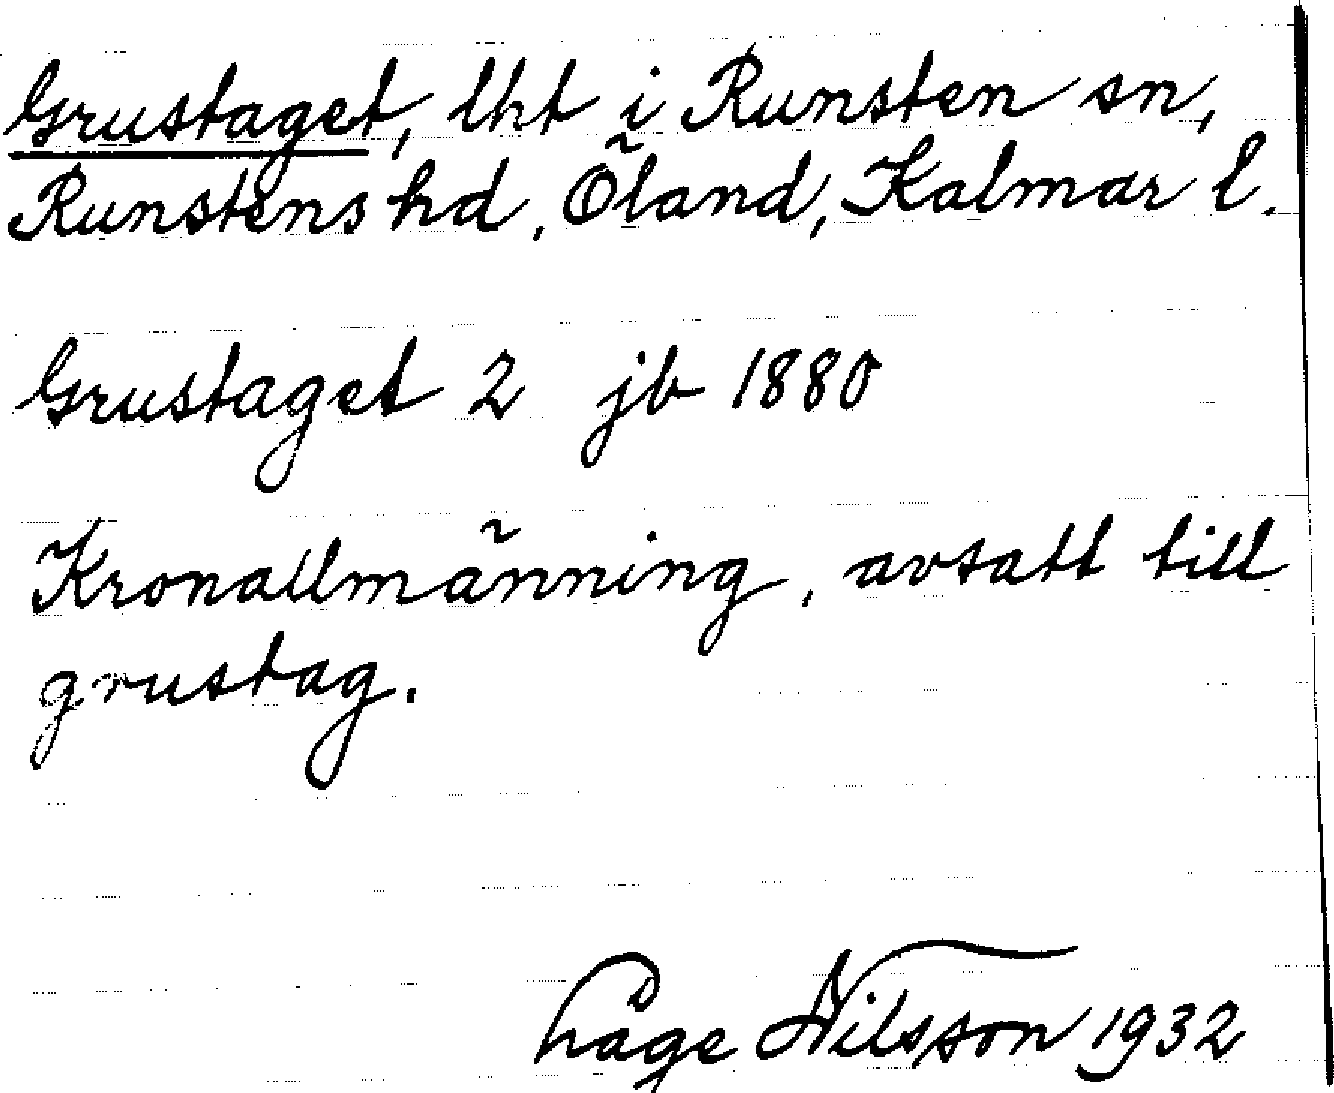 Grustaget, lht i Runsten sn,
Runstens hd, Öland, Kalmar l.
Grustaget 2 jb 1880
Kronallmänning, avsatt till
grustag.
Nilsson 1932